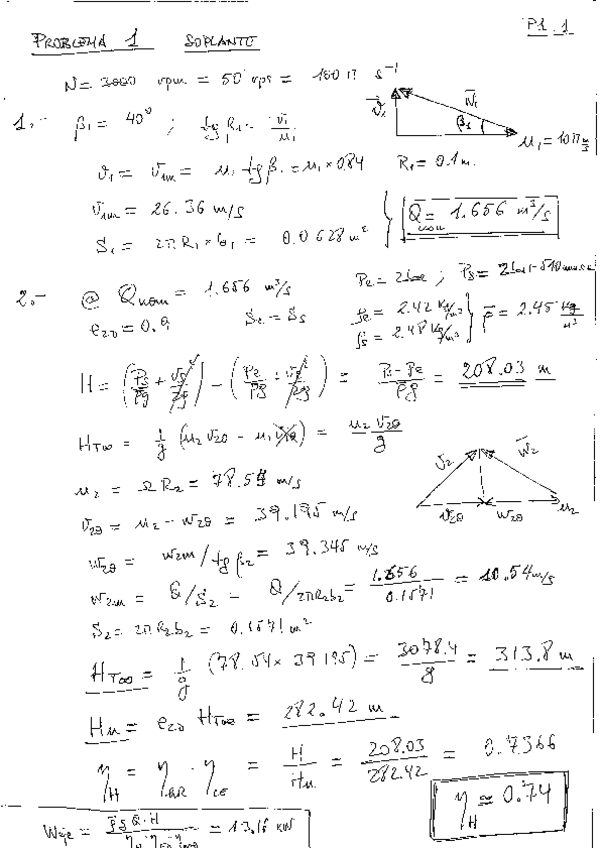 P1.1
PROBLEMA 1 SOPLANTE
N = 3000 rpm = 50 rps = 100 π s⁻¹
1.- β₁ = 40° ; tg β₁ = v₁/u₁
v₁ w₁ β₁ u₁ = 10π m/s
v₁ = v₁ₘ = u₁ tg β₁ = u₁ × 0.84 R₁ = 0.1 m.
v₁ₘ = 26.36 m/s
Q nom = 1.656 m³/s
S₁ = 2πR₁ × b₁ = 0.0628 m²
2.- @ Q nom = 1.656 m³/s
e₂₀ = 0.9 Sₑ = Sₛ
ρₑ = 2.42 kg/m³ ρₛ = 2.48 kg/m³ ρ̄ = 2.45 kg/m³
H = (Pₛ/ρg + vₛ²/2g) - (Pₑ/ρg + vₑ²/2g) = Pₛ - Pₑ/ρg = 208.03 m
H_T∞ = 1/g (u₂ v₂θ - u₁ v₁θ) = u₂ v₂θ/g
u₂ = Ω R₂ = 78.54 m/s
v₂ w₂ v₂θ w₂θ u₂
v₂θ = u₂ - w₂θ = 39.195 m/s
w₂θ = w₂ₘ / tg β₂ = 39.345 m/s
w₂ₘ = Q/S₂ = Q/2πR₂b₂ = 1.656/0.1571 = 10.54 m/s
S₂ = 2πR₂b₂ = 0.1571 m²
H_T∞ = 1/g (78.54 × 39.195) = 3078.4/g = 313.8 m
Hᵤ = e₂₀ H_T∞ = 282.42 m
η_H = η · η = H/Hᵤ = 208.03/282.42 = 0.7366
η_H ≃ 0.74
W_eje = ρgQ·H = 13.16 kW